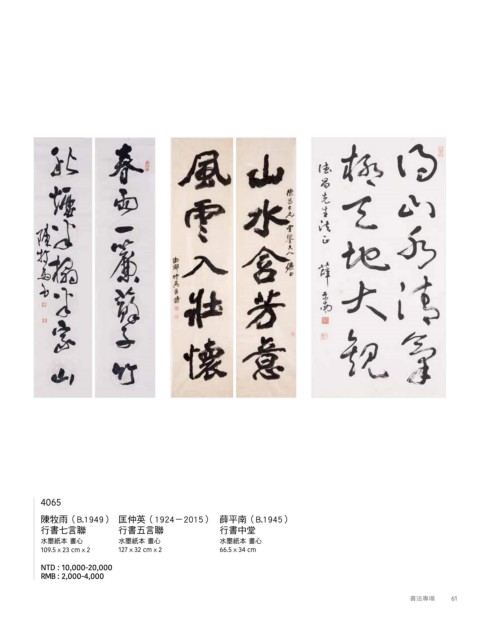 春雨一簾蘇子竹
秋煙半榻米家山
陳牧雨書
山水含芳意
風雲入壯懷
得山水清氣
極天地大觀
德昌先生法正
薛平南
4065
陳牧雨（B.1949）
行書七言聯
水墨紙本 畫心
109.5 x 23 cm x 2
匡仲英（1924－2015）
行書五言聯
水墨紙本 畫心
127 x 32 cm x 2
薛平南（B.1945）
行書中堂
水墨紙本 畫心
66.5 x 34 cm
NTD : 10,000-20,000
RMB : 2,000-4,000
書法專場 61